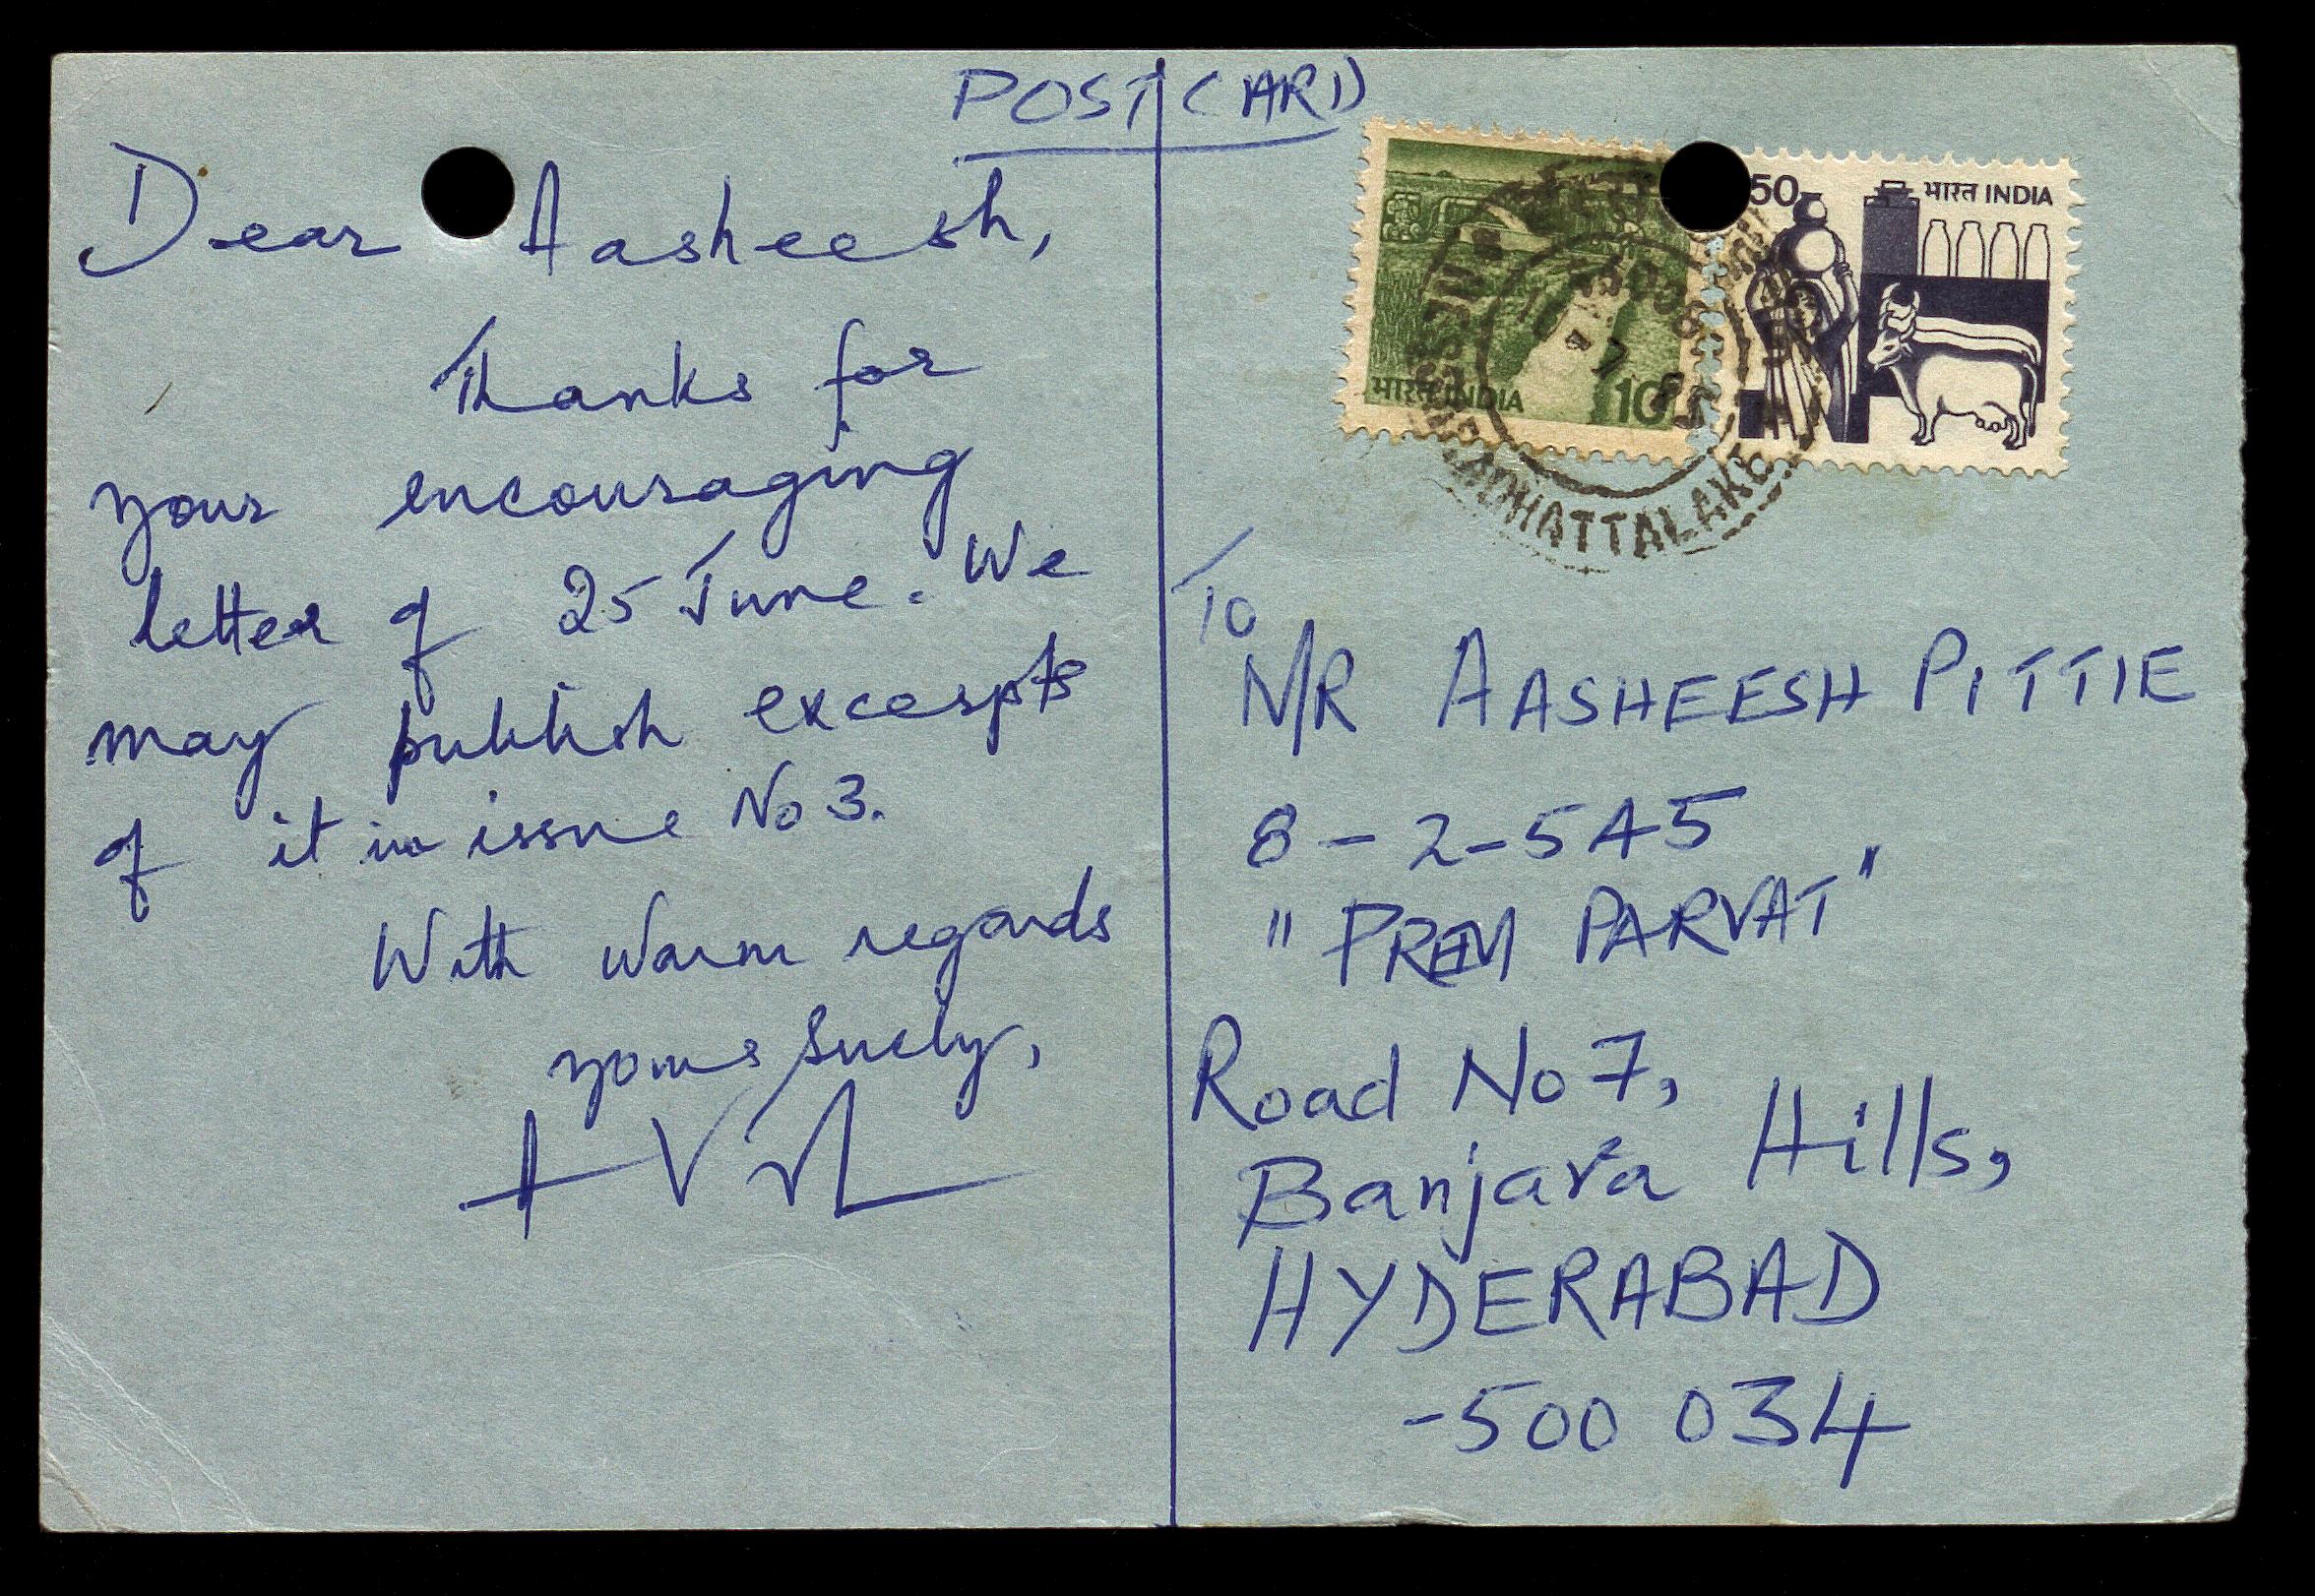 POSTCARD
Dear Aasheesh,
Thanks for
your encouraging
letter of 25 June. We
may publish excerpts
of it in issue No 3.
With warm regards
yours sincly,
50 भारत INDIA
भारत INDIA 10
SANDHATTALAKE
To
MR AASHEESH PITTIE
8-2-545
"PREM PARVAT"
Road No 7,
Banjara Hills,
HYDERABAD
-500 034